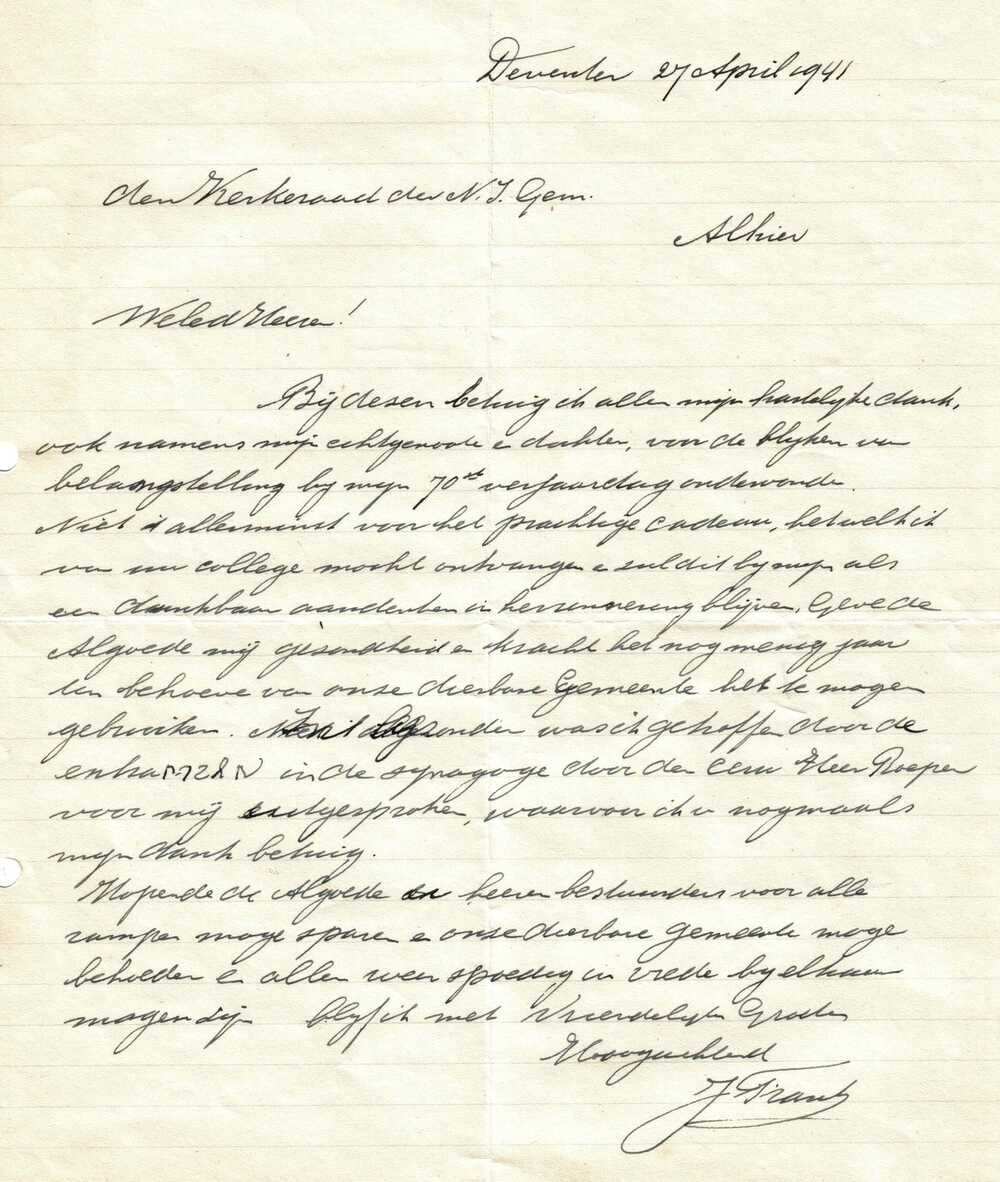 Deventer 27 April 1941
den Kerkeraad der N. I. Gem.
Alhier
WelEd Heeren!
Bij dezen betuig ik allen mijn hartelijke dank,
ook namens mijn echtgenoote en dochter, voor de blijken van
belangstelling bij mijn 70ste verjaardag ondervonden.
Niet allerminst voor het prachtige cadeau, hetwelk ik
van uw college mocht ontvangen en zal dit bij mijn als
een dankbaar aandenken in herinnering blijven. Geve de
Algoede mij gezondheid en kracht het nog menig jaar
ten behoeve van onze dierbare Gemeente het te mogen
gebruiken. zonder was ik getroffen door de
in de synagoge door den Heer Roeper
voor mij uitgesproken, waarvoor ik u nogmaals
mijn dank betuig.
Hopende de Algoede heeren bestuurders voor alle
rampen moge sparen en onze dierbare gemeente moge
behoeden en allen weer spoedig in vrede bij elkaar
mogen zijn blijf ik met Vriendelijke Groeten
Hoogachtend
J Frank